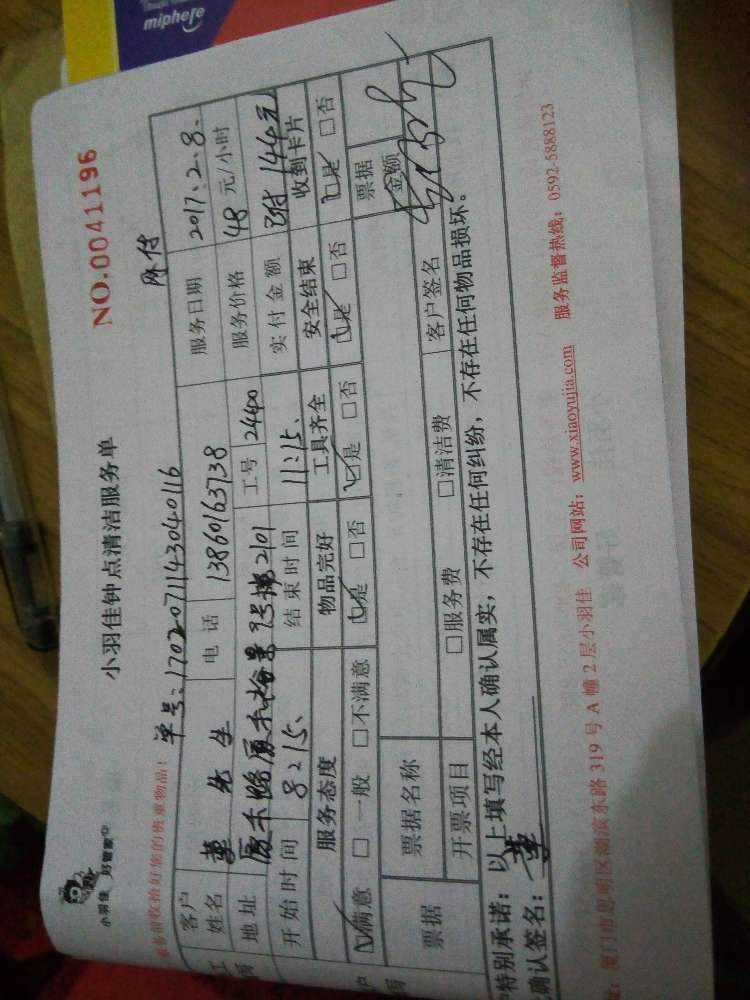 miphere
小羽佳 好管家
小羽佳钟点清洁服务单
NO.0041196
服务前收拾好您的贵重物品!
单号:170207114304016
客户姓名 先生 电话 13860163738 服务日期 2017.2.8.
地址 2101 工号 24400 服务价格 48 元/小时
开始时间 8:15. 结束时间 11:15. 实付金额 144元
服务态度 物品完好 工具齐全 安全结束 收到卡片
☑满意 □一般 □不满意 ☑是 □否 ☑是 □否 ☑是 □否 ☑是 □否
票据 票据名称 票据金额
开票项目 □服务费 □清洁费 客户签名
特别承诺:以上填写经本人确认属实,不存在任何纠纷,不存在任何物品损坏。
确认签名:
厦门市思明区湖滨东路 319 号 A 幢 2 层小羽佳 公司网站:www.xiaoyujia.com 服务监督热线:0592-5888123